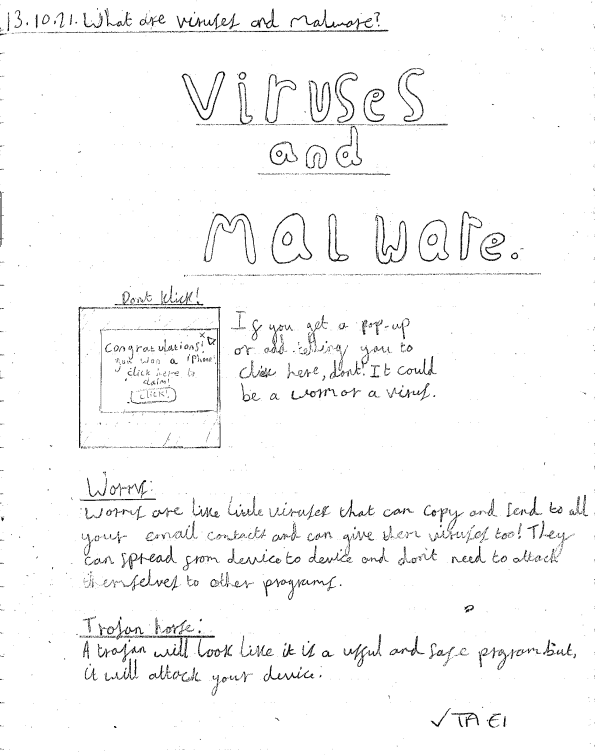 13.10.21. What are viruses and Malware?
Viruses
and
Malware.
Dont klick!
Congratulations!
you won a iPhone!
click here to
claim!
CLICK!
If you get a pop-up
or add telling you to
click here, dont! It could
be a worm or a virus.
Worms:
Worms are like little viruses that can copy and send to all
your email contacts and can give them viruses too! They
can spread from device to device and don't need to attack
themselves to other programs.
Trojan horse:
A trojan will look like it is a usful and safe prgram but,
it will attack your device.
✓TA E1